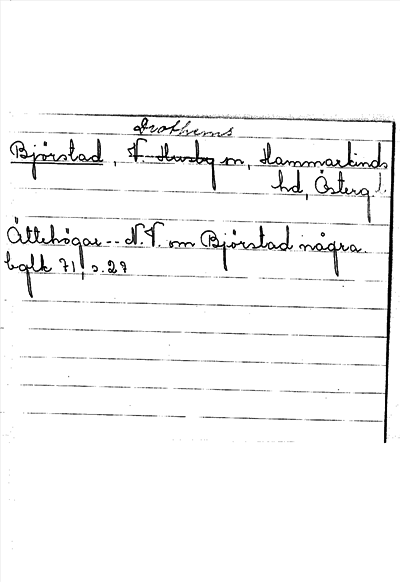 Drothems
Björstad, V. Husby sn, Hammarkinds
hd, Österg l.
Ättehögar -- N.V. om Björstad några
bglk 71, s. 27